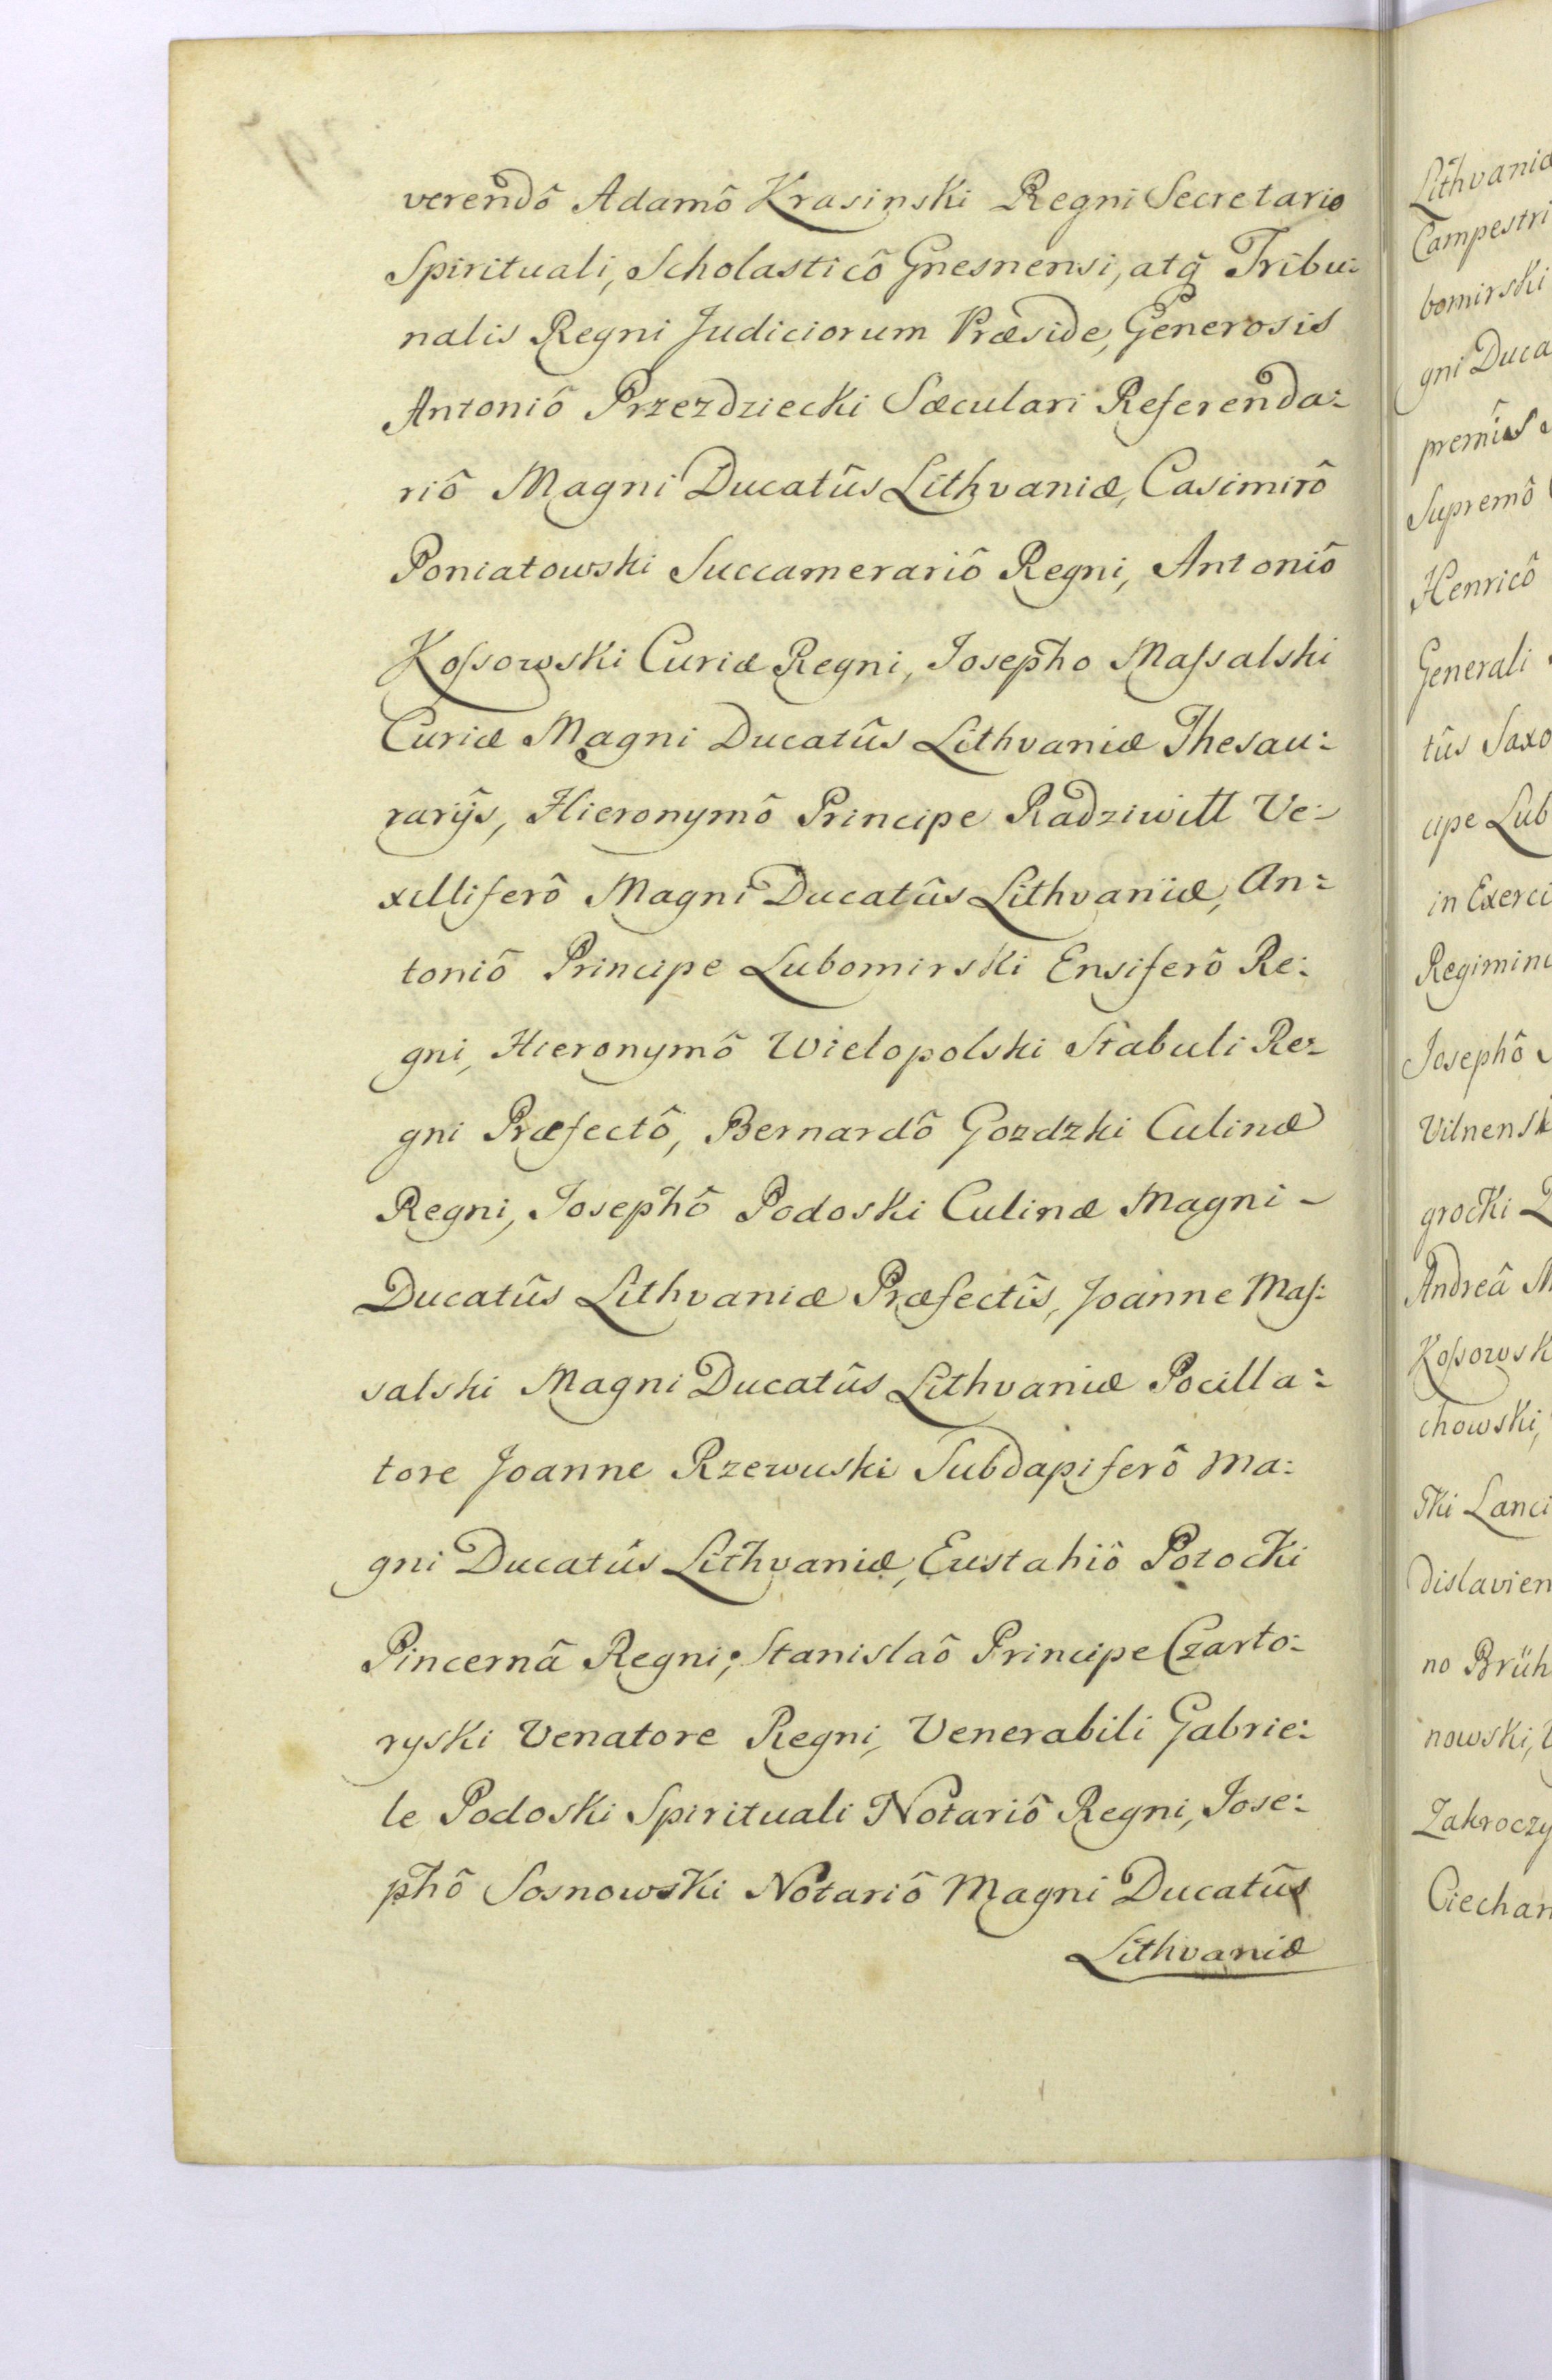 verendô Adamô Krasinski Regni Secretario
Spirituali, Scholasticô Gnesnensi, atq̃ Tribu:
nalis Regni Judiciorum Præside, Generosis
Antoniô Przezdziecki Sæculari Referenda:
riô Magni Ducatûs Lithvaniæ, Casimirô
Poniatowski Succamerariô Regni, Antoniô
Koſsowski Curiæ Regni, Josepho Maſsalski
Curiæ Magni Ducatûs Lithvaniæ Thesau:
rarijs, Hieronymô Principe Radziwitt Ve:
xilliferô Magni Ducatûs Lithvaniæ, An:
toniô Principe Lubomirski Ensiferô Re:
gni, Hieronymô Wielopolski Stabuli Re:
gni Præfectô, Bernardô Gozdzki Culinæ
Regni, Josephô Podoski Culinæ Magni -
Ducatûs Lithvaniæ Præfectîs, Joanne Maſ:
salski Magni Ducatûs Lithvaniæ Pocilla:
tore Joanne Rzewuski Subdapiferô Ma:
gni Ducatûs Lithvaniæ, Eustahiô Potocki
Pincernâ Regni; Stanislaô Principe Czarto:
ryski Venatore Regni, Venerabili Gabrie:
le Podoski Spirituali Notariô Regni, Jose:
phô Sosnowski Notariô Magni Ducatûs
Lithvaniæ
Lithvaniæ
Campestri
bomirski
gni Duca
premîs
Supremô
Henricô
Generali
tûs Saxo
cipe Lub
in Exerci
Regimin
Josephô
Vilnensi
grocki
Andreâ
Koſsowsk
chowski,
ski Lanci
dislavien
no Brüh
nowski,
Zakroczy
Ciechan